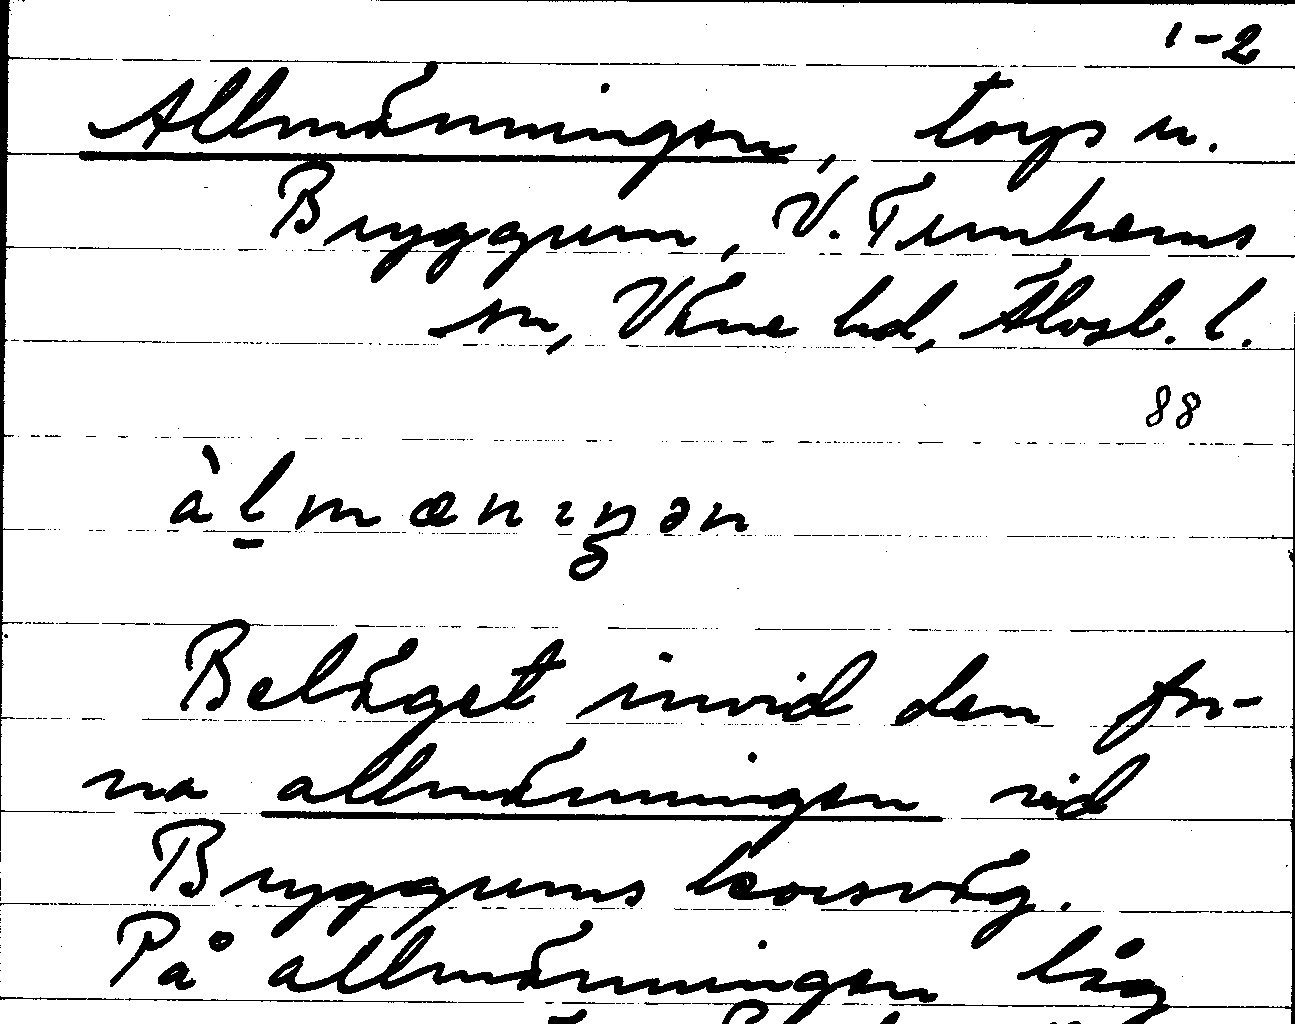 1-2
Allmänningen, torp u.
Bryggum, V. Tunhems
sn, Väne hd, Älvsb. l.
88
àlmænıŋən
Beläget invid den for-
na allmänningen vid
Bryggums korsväg.
På allmänningen låg